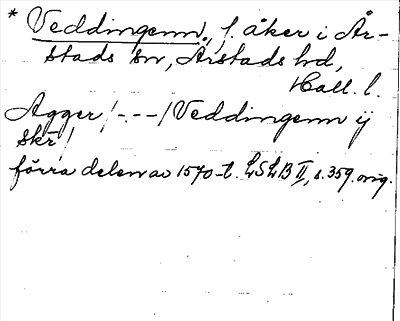 * Veddingenn., f. åker i År-
stads sn, Årstads hd,
Hall. l.
Agger /---/ Veddingenn ij
skr/
förra delen av 1570-t. LSLB II, s. 359. orig.